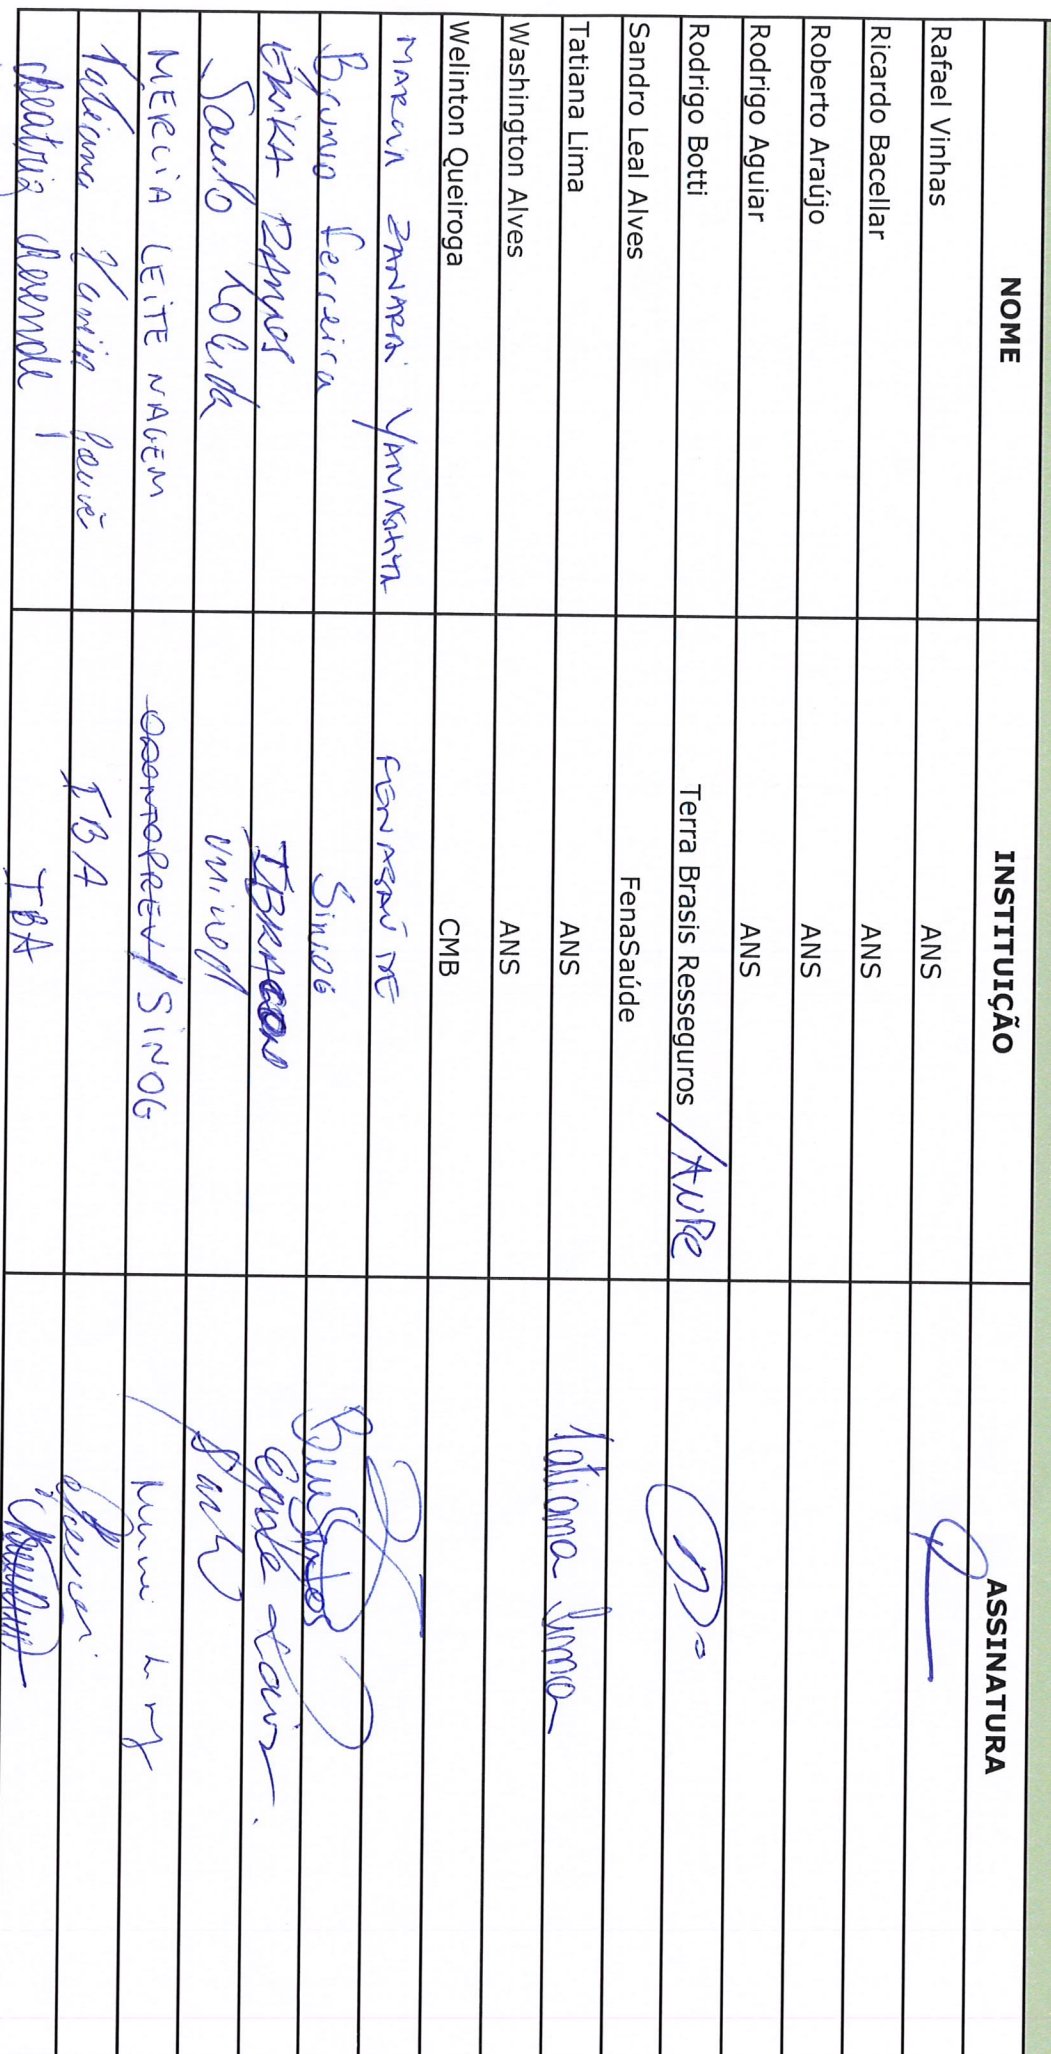 NOME INSTITUIÇÃO ASSINATURA
Rafael Vinhas ANS
Ricardo Bacellar ANS
Roberto Araújo ANS
Rodrigo Aguiar ANS
Rodrigo Botti Terra Brasis Resseguros /ANRe
Sandro Leal Alves FenaSaúde
Tatiana Lima ANS Tatiana Lima
Washington Alves ANS
Welinton Queiroga CMB
MARCIA ZANARDI YAMASHITA FENASAÚDE
Bruno Ferreira Sinog
ERIKA RAMOS IBRACON
Saulo
MERCIA LEITE NAGEM ODONTOPREV/SINOG
Tatiana IBA
Beatriz Resende IBA